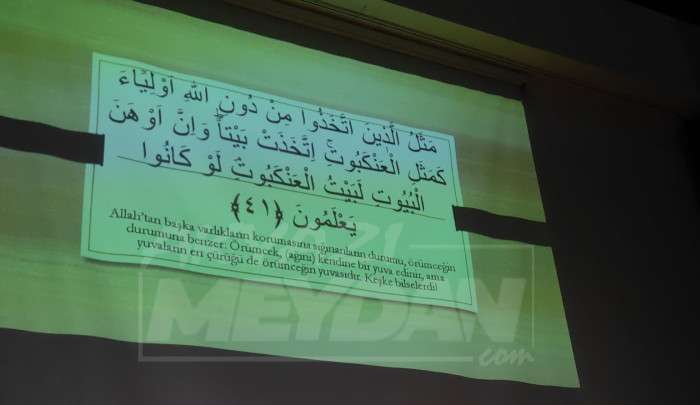 مَثَلُ الَّذِينَ اتَّخَذُوا مِنْ دُونِ اللَّهِ اَوْلِيَٓاءَ
كَمَثَلِ الْعَنْكَبُوتِۚ اِتَّخَذَتْ بَيْتاًۜ وَاِنَّ اَوْهَنَ
الْبُيُوتِ لَبَيْتُ الْعَنْكَبُوتِۢ لَوْ كَانُوا
يَعْلَمُونَ ﴿٤١﴾
Allah'tan başka varlıkların korumasına sığınanların durumu, örümceğin
durumuna benzer: Örümcek, (ağını) kendine bir yuva edinir, ama
yuvaların en çürüğü de örümceğin yuvasıdır. Keşke bilselerdi!
MEYDAN
com